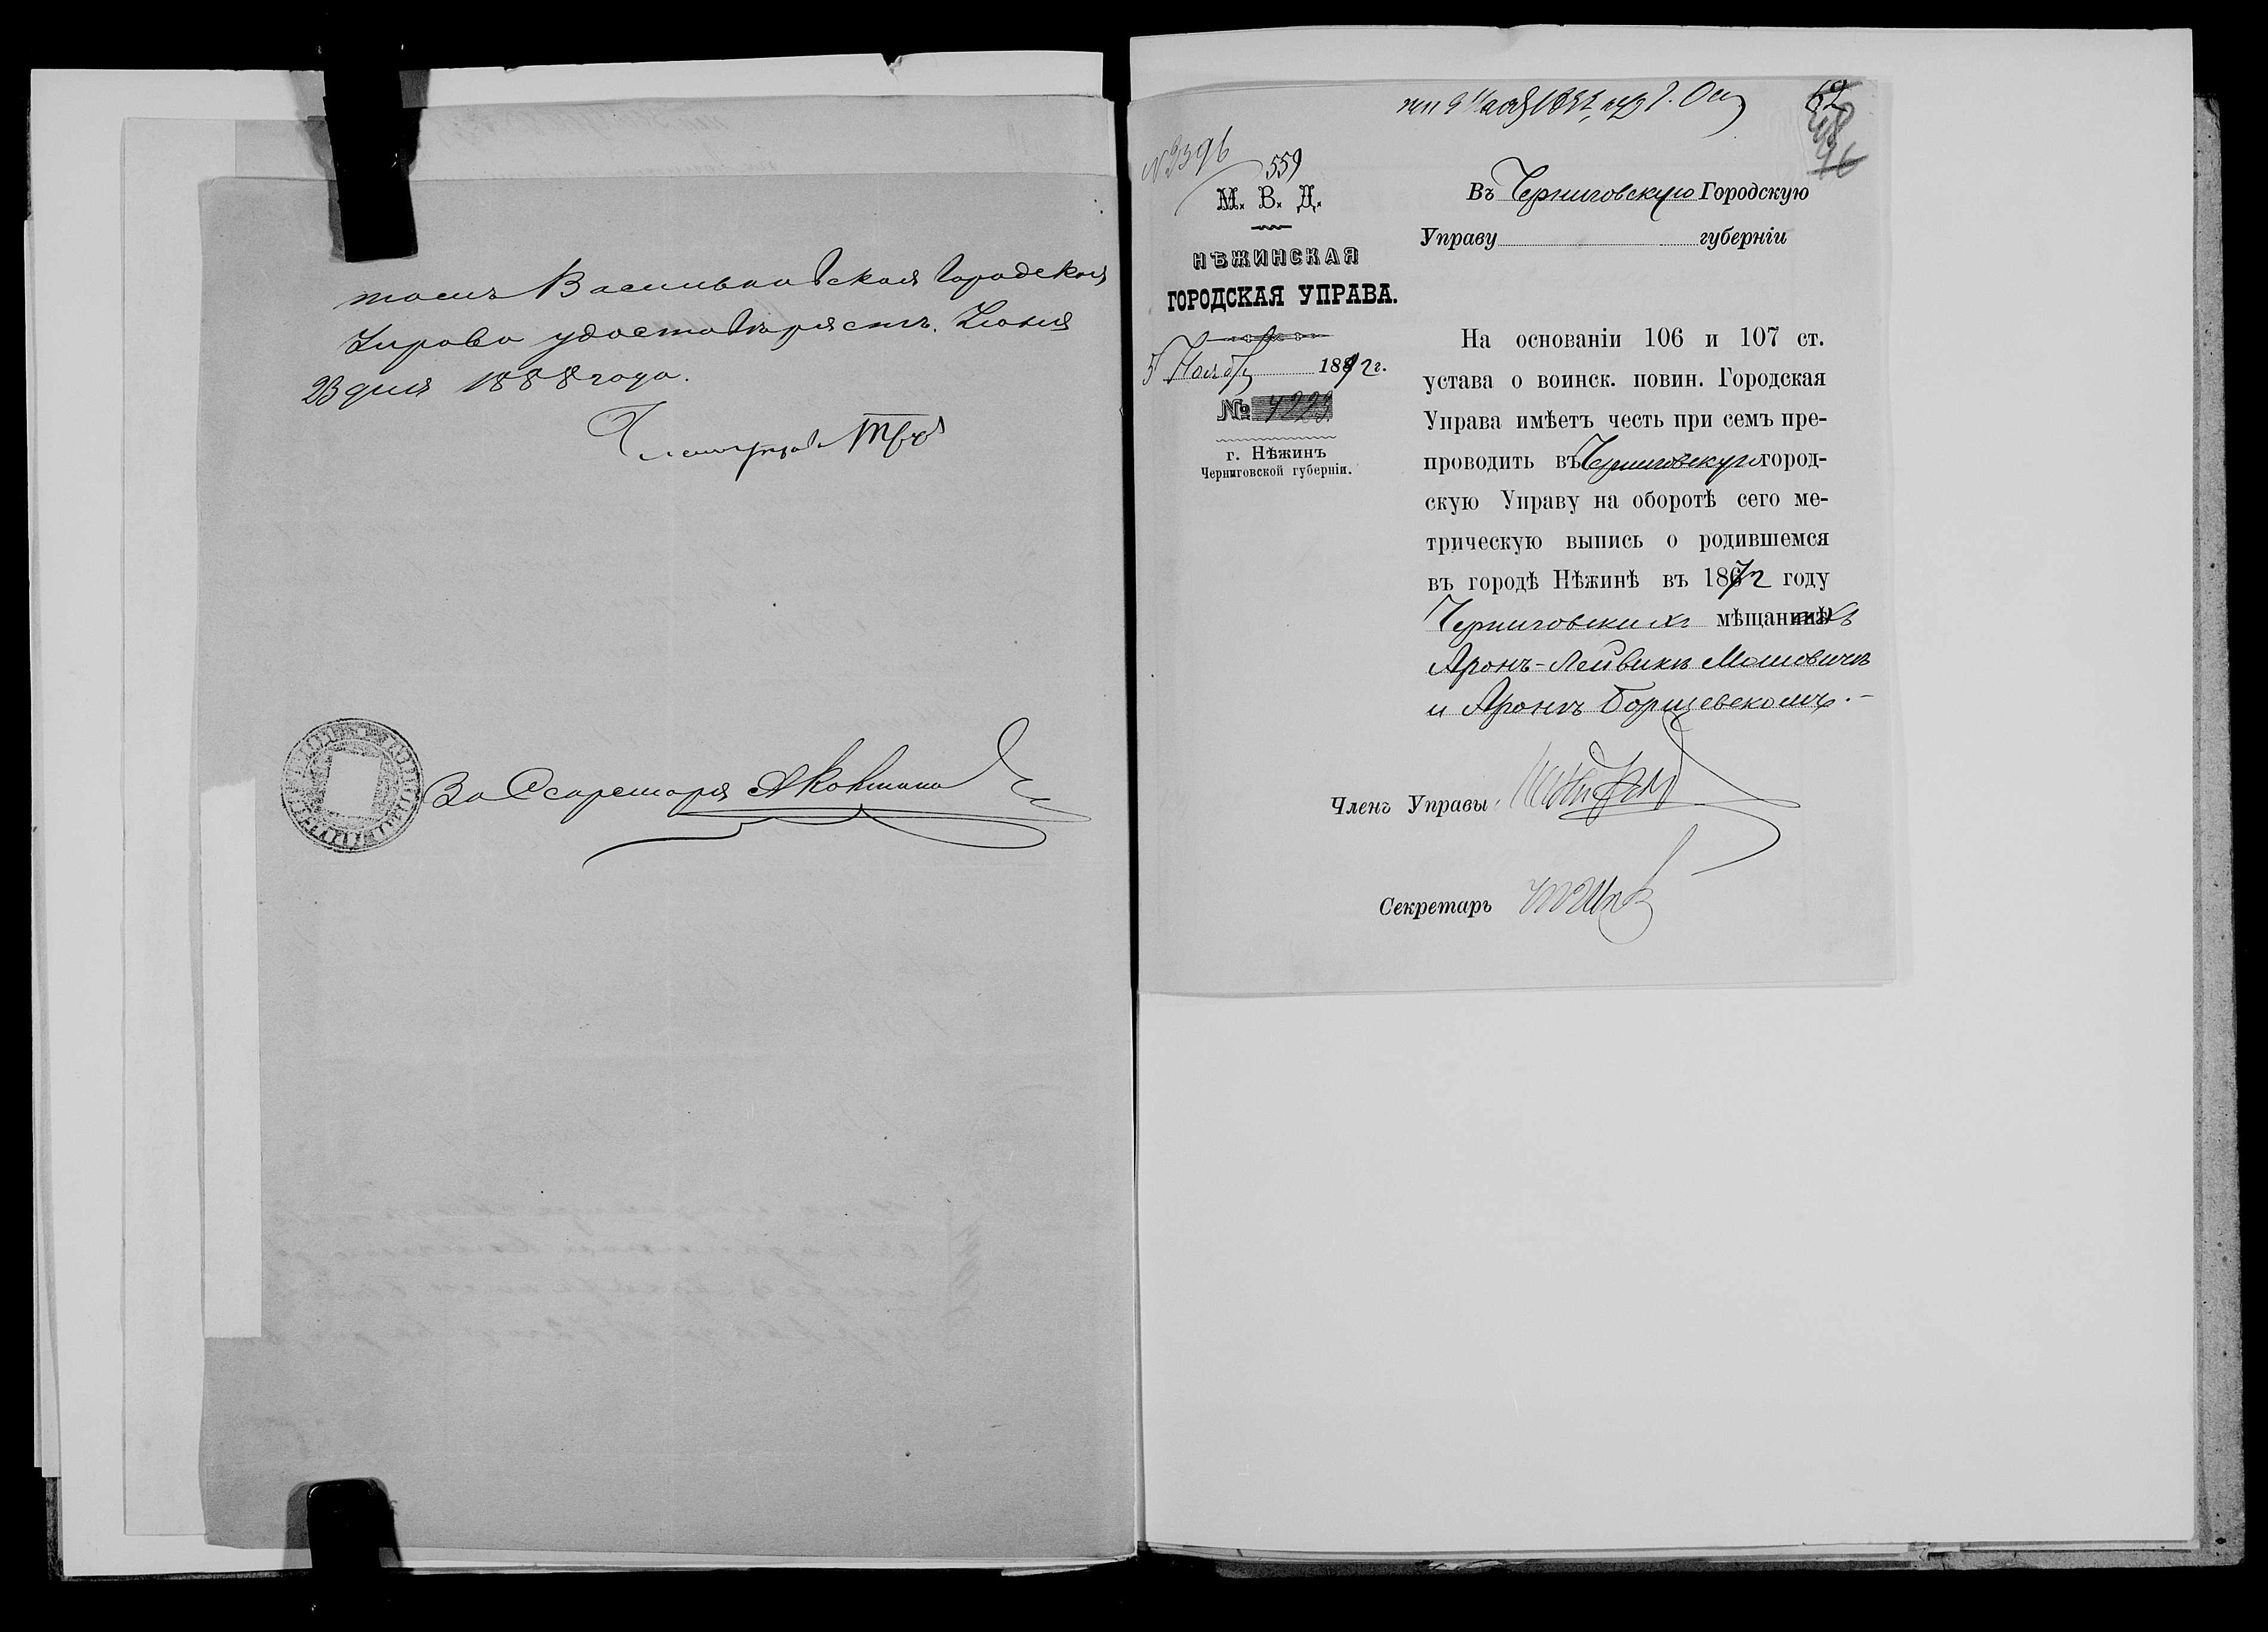 томъ Васильковская Городская
Управа удостовѣряетъ. Іюня
23 дня 1888 года.
Членъ Управы
За Секретаря
62
48
46
№ 2396
559
М. В. Д.
НѢЖИНСКАЯ
ГОРОДСКАЯ УПРАВА.
5 Ноября 1892 г.
№ 4223.
г. Нѣжинъ
Черниговской губерніи.
Въ Черниговскую Городскую
Управу губерніи
На основаніи 106 и 107 ст.
устава о воинск. повин. Городская
Управа имѣетъ честь при семъ пре-
проводить въ Черниговскую город-
скую Управу на оборотѣ сего ме-
трическую выпись о родившемся
въ городѣ Нѣжинѣ въ 1872 году
Черниговскихъ мѣщанахъ
Аронъ-Лейвикъ Мошовичъ
и Аронъ Борщевскомъ.-
Членъ Управы
Секретарь